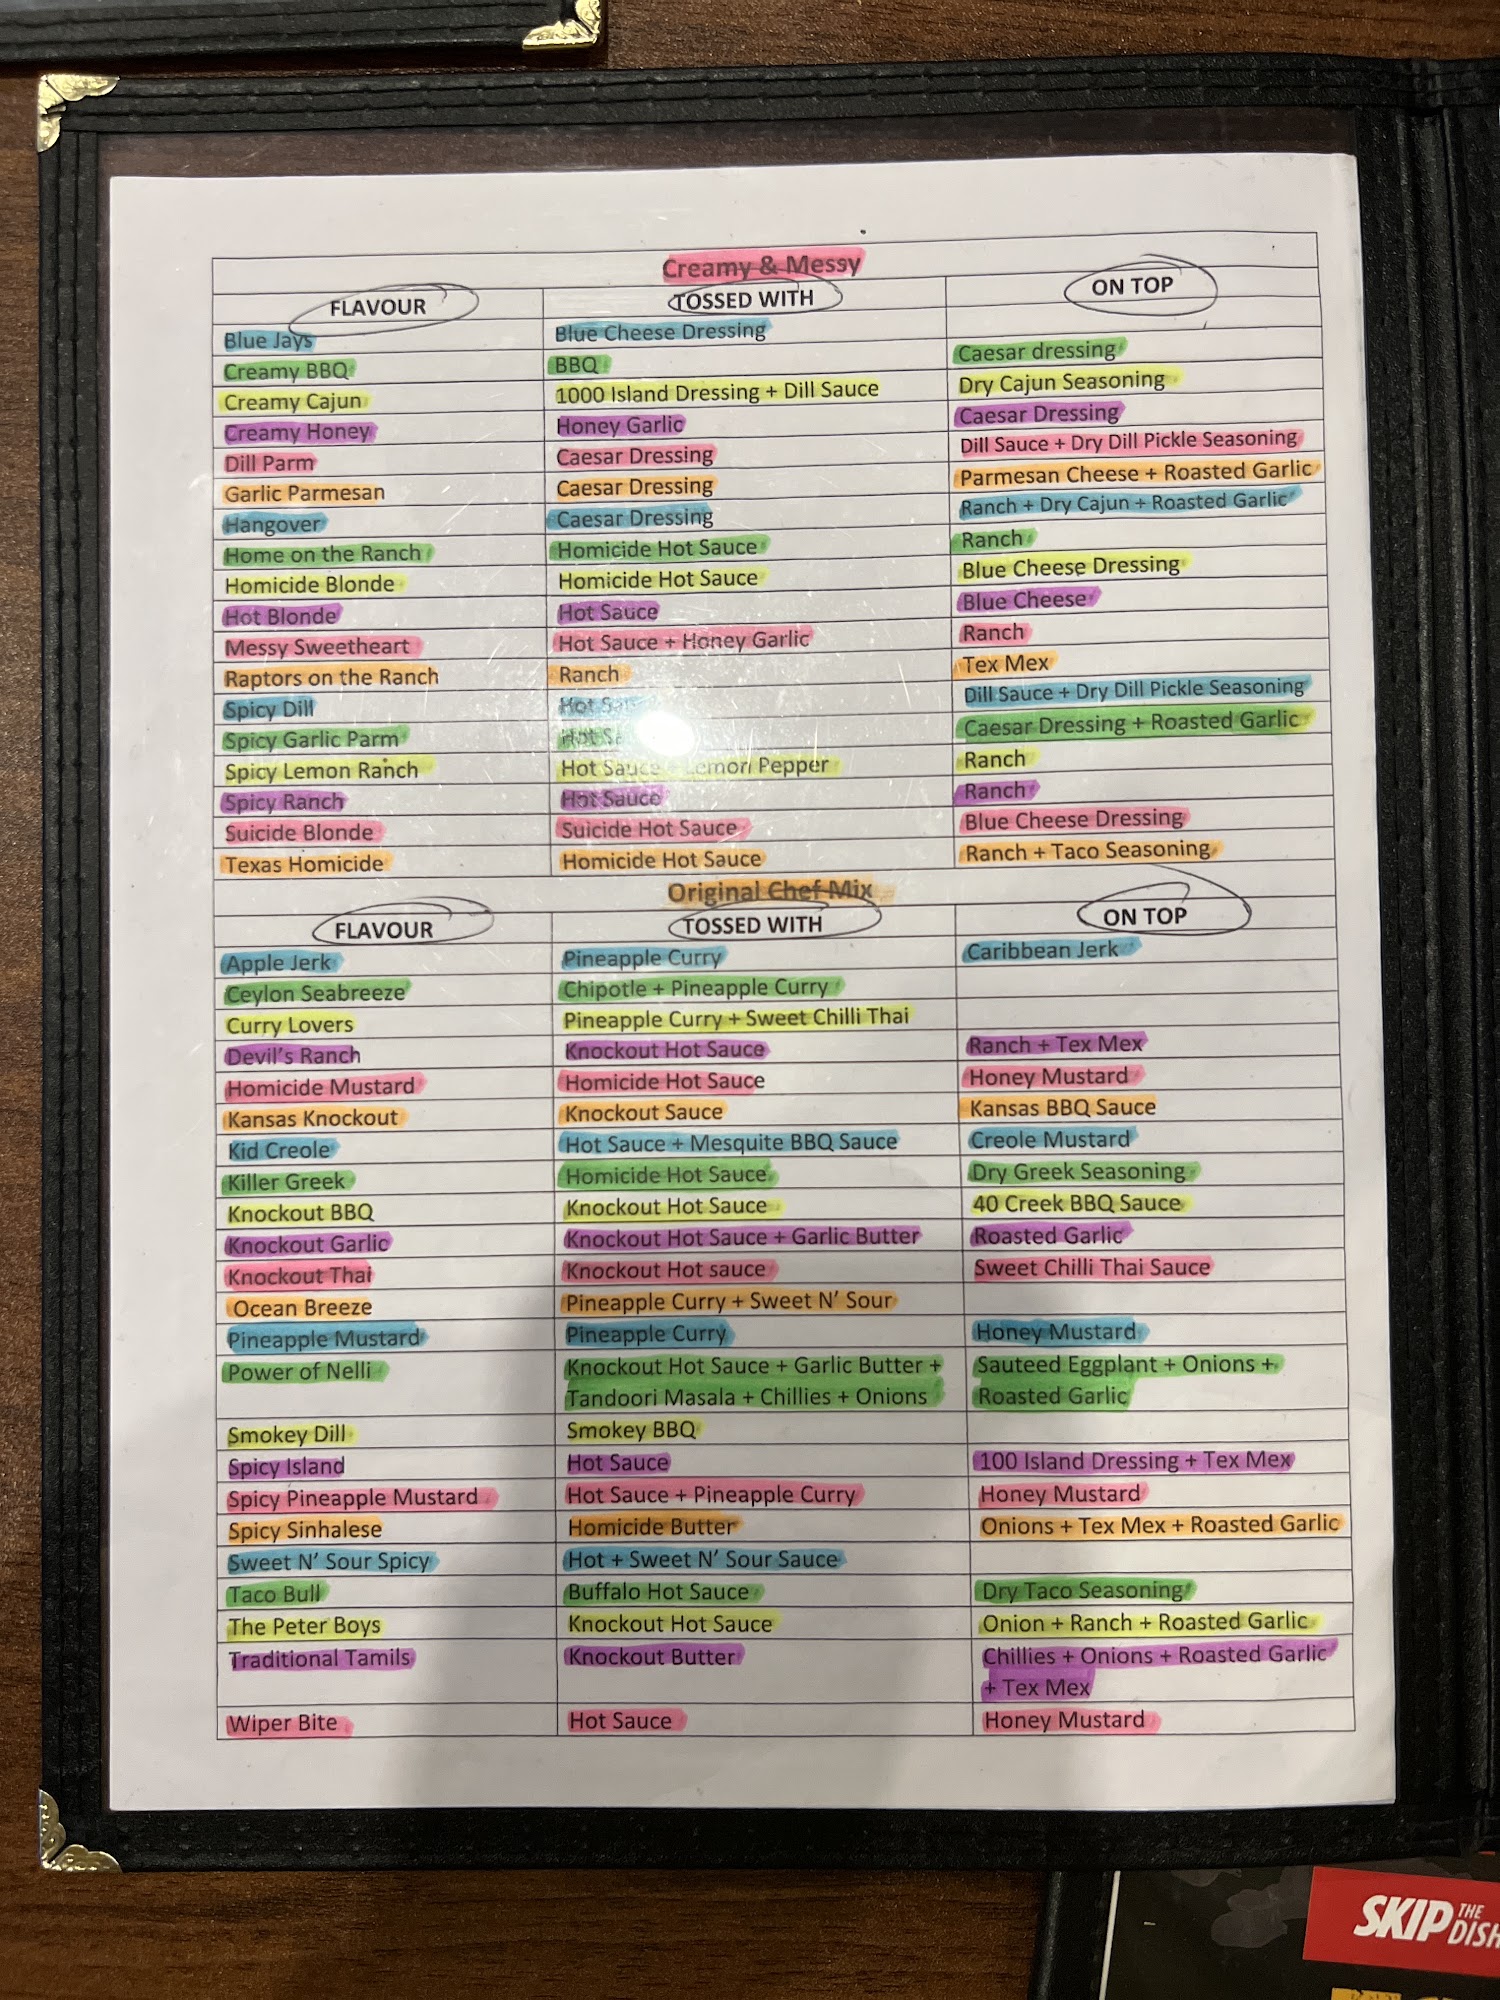 Creamy & Messy
FLAVOUR TOSSED WITH ON TOP
Blue Jays Blue Cheese Dressing
Creamy BBQ BBQ Caesar dressing
Creamy Cajun 1000 Island Dressing + Dill Sauce Dry Cajun Seasoning
Creamy Honey Honey Garlic Caesar Dressing
Dill Parm Caesar Dressing Dill Sauce + Dry Dill Pickle Seasoning
Garlic Parmesan Caesar Dressing Parmesan Cheese + Roasted Garlic
Hangover Caesar Dressing Ranch + Dry Cajun + Roasted Garlic
Home on the Ranch Homicide Hot Sauce Ranch
Homicide Blonde Homicide Hot Sauce Blue Cheese Dressing
Hot Blonde Hot Sauce Blue Cheese
Messy Sweetheart Hot Sauce + Honey Garlic Ranch
Raptors on the Ranch Ranch Tex Mex
Spicy Dill Hot Dill Sauce + Dry Dill Pickle Seasoning
Spicy Garlic Parm Hot Caesar Dressing + Roasted Garlic
Spicy Lemon Ranch Hot Sauce Pepper Ranch
Spicy Ranch Hot Sauce Ranch
Suicide Blonde Suicide Hot Sauce Blue Cheese Dressing
Texas Homicide Homicide Hot Sauce Ranch + Taco Seasoning
Original Chef Mix
FLAVOUR TOSSED WITH ON TOP
Apple Jerk Pineapple Curry Caribbean Jerk
Ceylon Seabreeze Chipotle + Pineapple Curry
Curry Lovers Pineapple Curry + Sweet Chilli Thai
Devil's Ranch Knockout Hot Sauce Ranch + Tex Mex
Homicide Mustard Homicide Hot Sauce Honey Mustard
Kansas Knockout Knockout Sauce Kansas BBQ Sauce
Kid Creole Hot Sauce + Mesquite BBQ Sauce Creole Mustard
Killer Greek Homicide Hot Sauce Dry Greek Seasoning
Knockout BBQ Knockout Hot Sauce 40 Creek BBQ Sauce
Knockout Garlic Knockout Hot Sauce + Garlic Butter Roasted Garlic
Knockout Thai Knockout Hot sauce Sweet Chilli Thai Sauce
Ocean Breeze Pineapple Curry + Sweet N' Sour
Pineapple Mustard Pineapple Curry Honey Mustard
Power of Nelli Knockout Hot Sauce + Garlic Butter + Sauteed Eggplant + Onions +
Tandoori Masala + Chillies + Onions Roasted Garlic
Smokey Dill Smokey BBQ
Spicy Island Hot Sauce 100 Island Dressing + Tex Mex
Spicy Pineapple Mustard Hot Sauce + Pineapple Curry Honey Mustard
Spicy Sinhalese Homicide Butter Onions + Tex Mex + Roasted Garlic
Sweet N' Sour Spicy Hot + Sweet N' Sour Sauce
Taco Bull Buffalo Hot Sauce Dry Taco Seasoning
The Peter Boys Knockout Hot Sauce Onion + Ranch + Roasted Garlic
Traditional Tamils Knockout Butter Chillies + Onions + Roasted Garlic
+ Tex Mex
Wiper Bite Hot Sauce Honey Mustard
SKIP THE